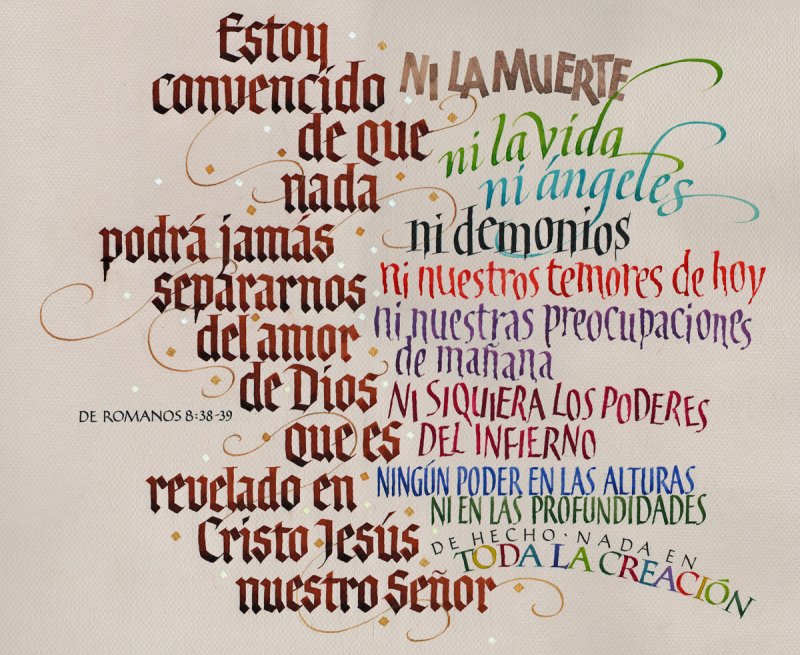 Estoy
convencido
de que
nada
podrá jamás
separarnos
del amor
de Dios
que es
revelado en
Cristo Jesús
nuestro Señor
NI LA MUERTE
ni la vida
ni ángeles
ni demonios
ni nuestros temores de hoy
ni nuestras preocupaciones
de mañana
NI SIQUIERA LOS PODERES
DEL INFIERNO
NINGÚN PODER EN LAS ALTURAS
NI EN LAS PROFUNDIDADES
DE HECHO · NADA EN
TODA LA CREACIÓN
DE ROMANOS 8:38-39